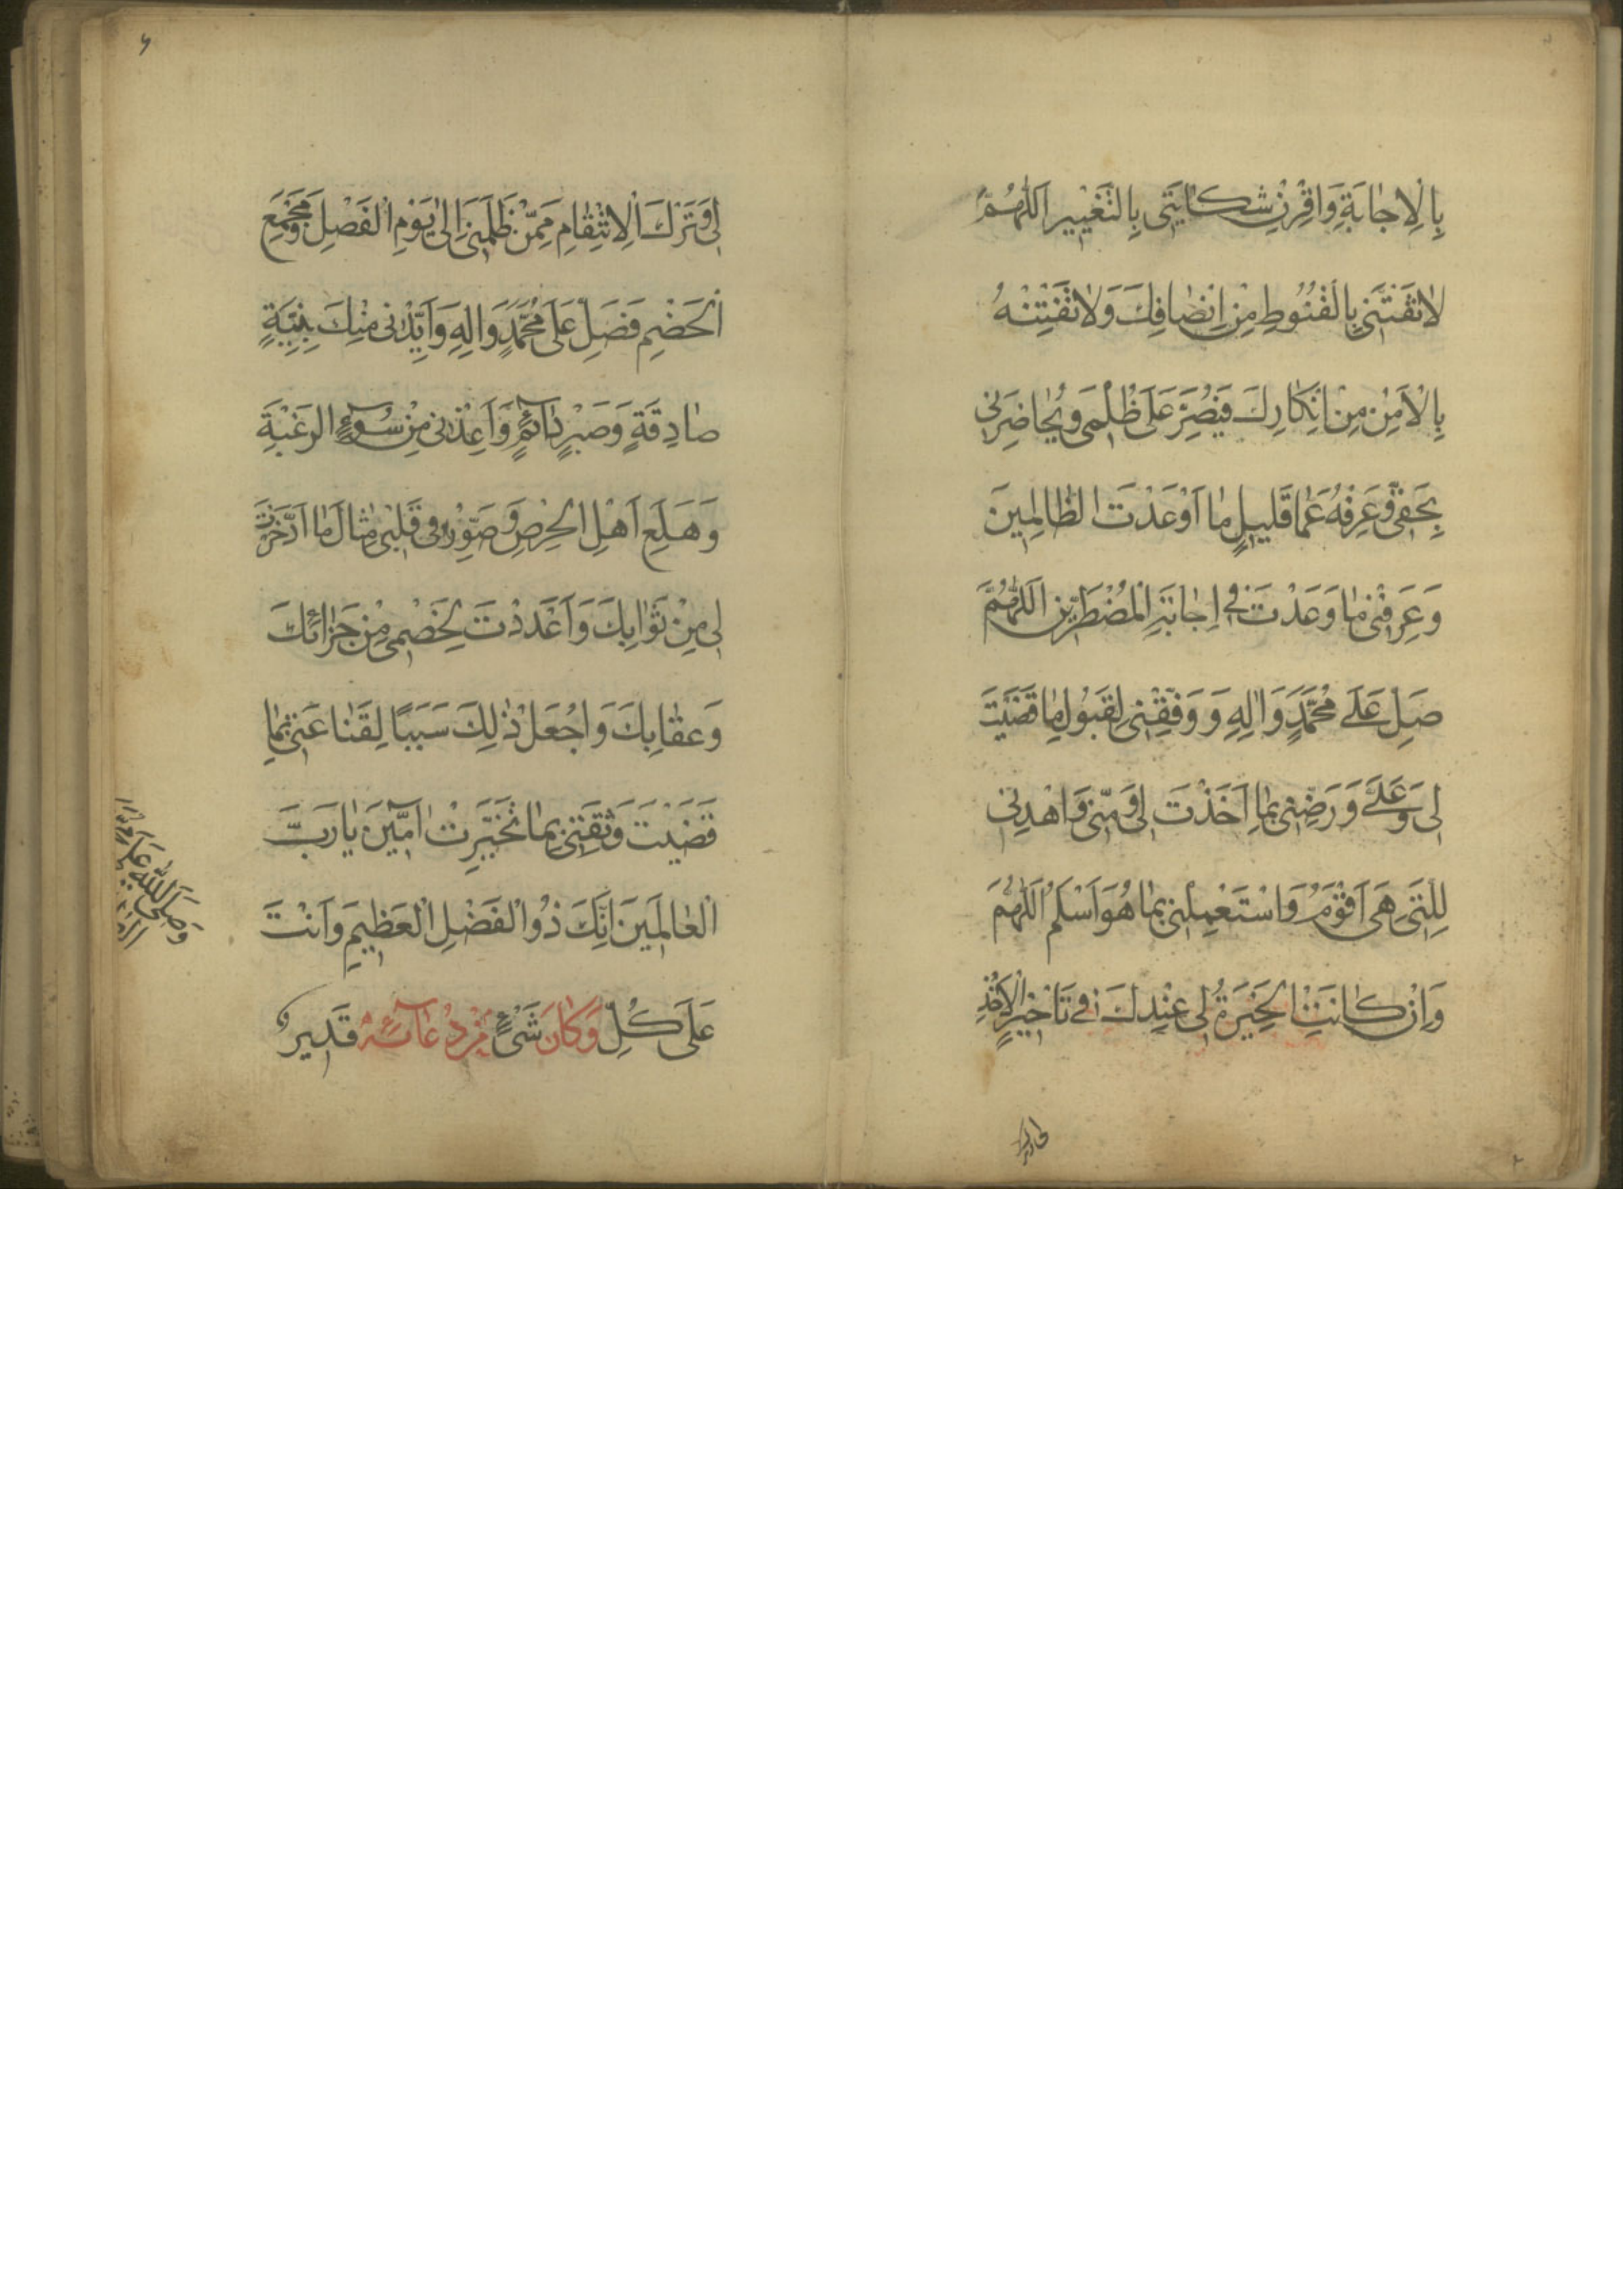 بِالْاِجٰابَةِ وَاقْرِنْ شِكٰايَتِى بِالتَّغْيِيرِ اَللّٰهُمَّ
لٰا تَفْتِنَّنِى بِالْقُنُوطِ مِنْ اِنْصٰافِكَ وَلٰا تَفْتِنْهُ
بِالْاَمْنِ مِنْ اِنْكٰارِكَ فَيُصِرَّ عَلَى ظُلْمِى وَيُحٰاضِرَنِى
بِحَقِّى وَعَرِّفْهُ عَمّٰا قَلِيلٍ مٰا اَوْعَدْتَ الظّٰالِمِينَ
وَعَرِّفْنِى مٰا وَعَدْتَ فِى اِجٰابَةِ الْمُضْطَرِّينَ اَللّٰهُمَّ
صَلِّ عَلَى مُحَمَّدٍ وَاٰلِهِ وَ وَفِّقْنِى لِقَبُولِ مٰا قَضَيْتَ
لِى وَعَلَىَّ وَرَضِّنِى بِمٰا اَخَذْتَ لِى وَمِنِّى وَاهْدِنِى
لِلَّتِى هِىَ اَقْوَمُ وَاسْتَعْمِلْنِى بِمٰا هُوَ اَسْلَمُ اَللّٰهُمَّ
وَاِنْ كٰانَتِ الْخِيَرَةُ لِى عِنْدَكَ فِى تَأْخِيرِ الْاَخْذِ
لِى وَتَرْكَ الْاِنْتِقٰامِ مِمَّنْ ظَلَمَنِى اِلىٰ يَوْمِ الْفَصْلِ وَمَجْمَعِ
الْخَصْمِ فَصَلِّ عَلَى مُحَمَّدٍ وَاٰلِهِ وَاَيِّدْنِى مِنْكَ بِنِيَّةٍ
صٰادِقَةٍ وَصَبْرٍ دٰائِمٍ وَاَعِذْنِى مِنْ سُوۤءِ الرَغْبَةِ
وَهَلَعِ اَهْلِ الْحِرْصِ وَصَوِّرْ فِى قَلْبِى مِثٰالَ مٰا ادَّخَرْتَ
لِى مِنْ ثَوٰابِكَ وَاَعْدَدْتَ لِخَصْمِى مِنْ جَزٰائِكَ
وَعِقٰابِكَ وَاجْعَلْ ذٰلِكَ سَبَبًا لِقَنٰاعَتِى بِمٰا
قَضَيْتَ وَثِقَتِى بِمٰا تَخَيَّرْتَ اٰمِّينَ يٰا رَبَّ
الْعٰالَمِينَ اِنَّكَ ذُوالْفَضْلِ الْعَظِيمِ وَاَنْتَ
عَلَى كُلِّ وَكٰانَ شَىْءٍ مِنْ دُعٰآئِهِ قَدِيرٌ
وَصَلَّى اللّٰهُ عَلَى